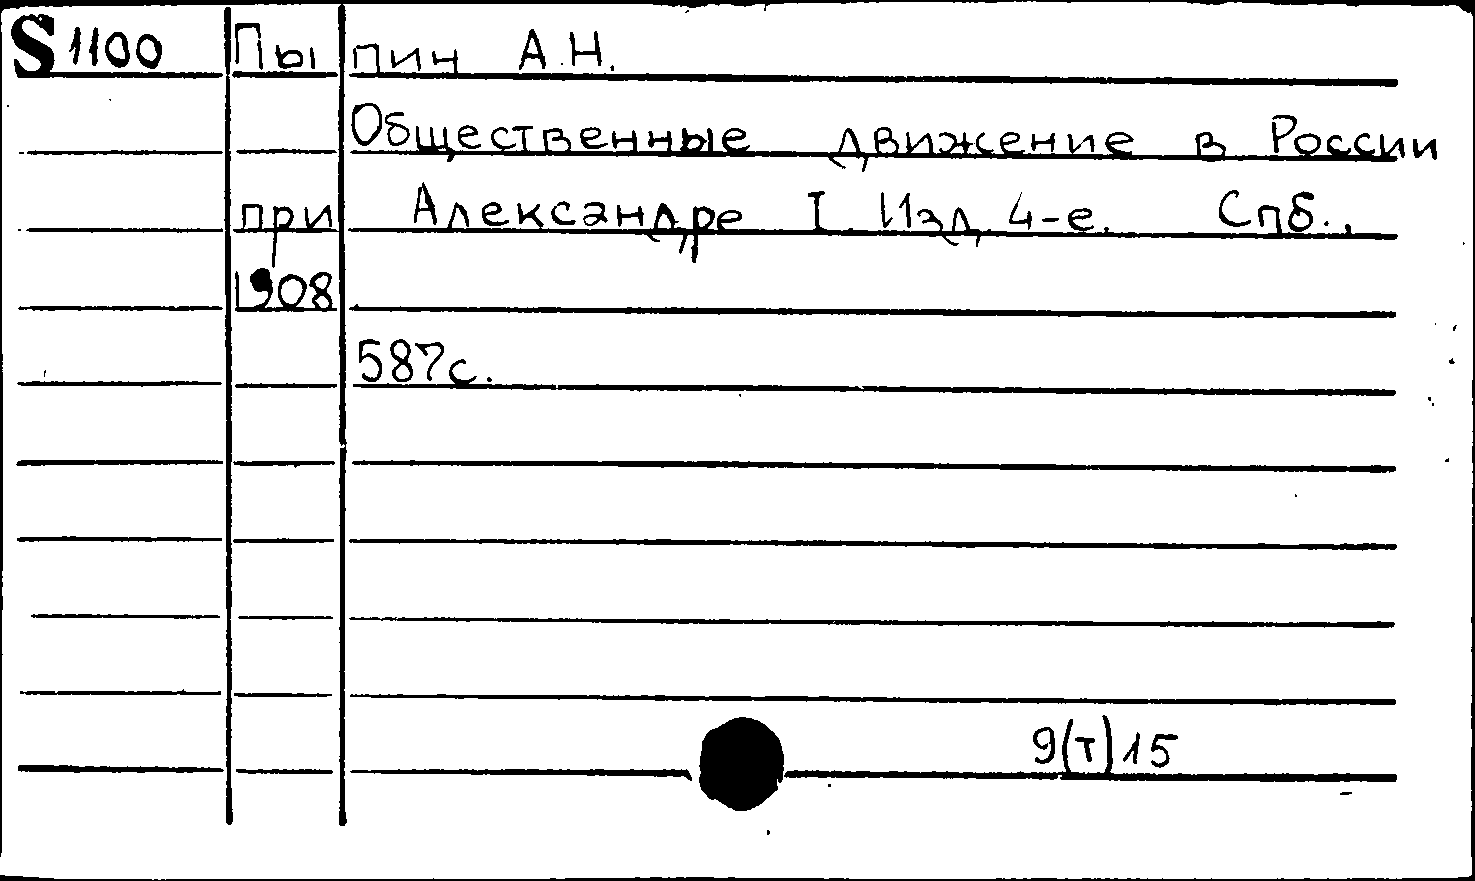 S 1100 Пыпин А.Н.
Общественные движение в России
при Александре I. Изд. 4-е. Спб.,
1908
587с.
9(т)15